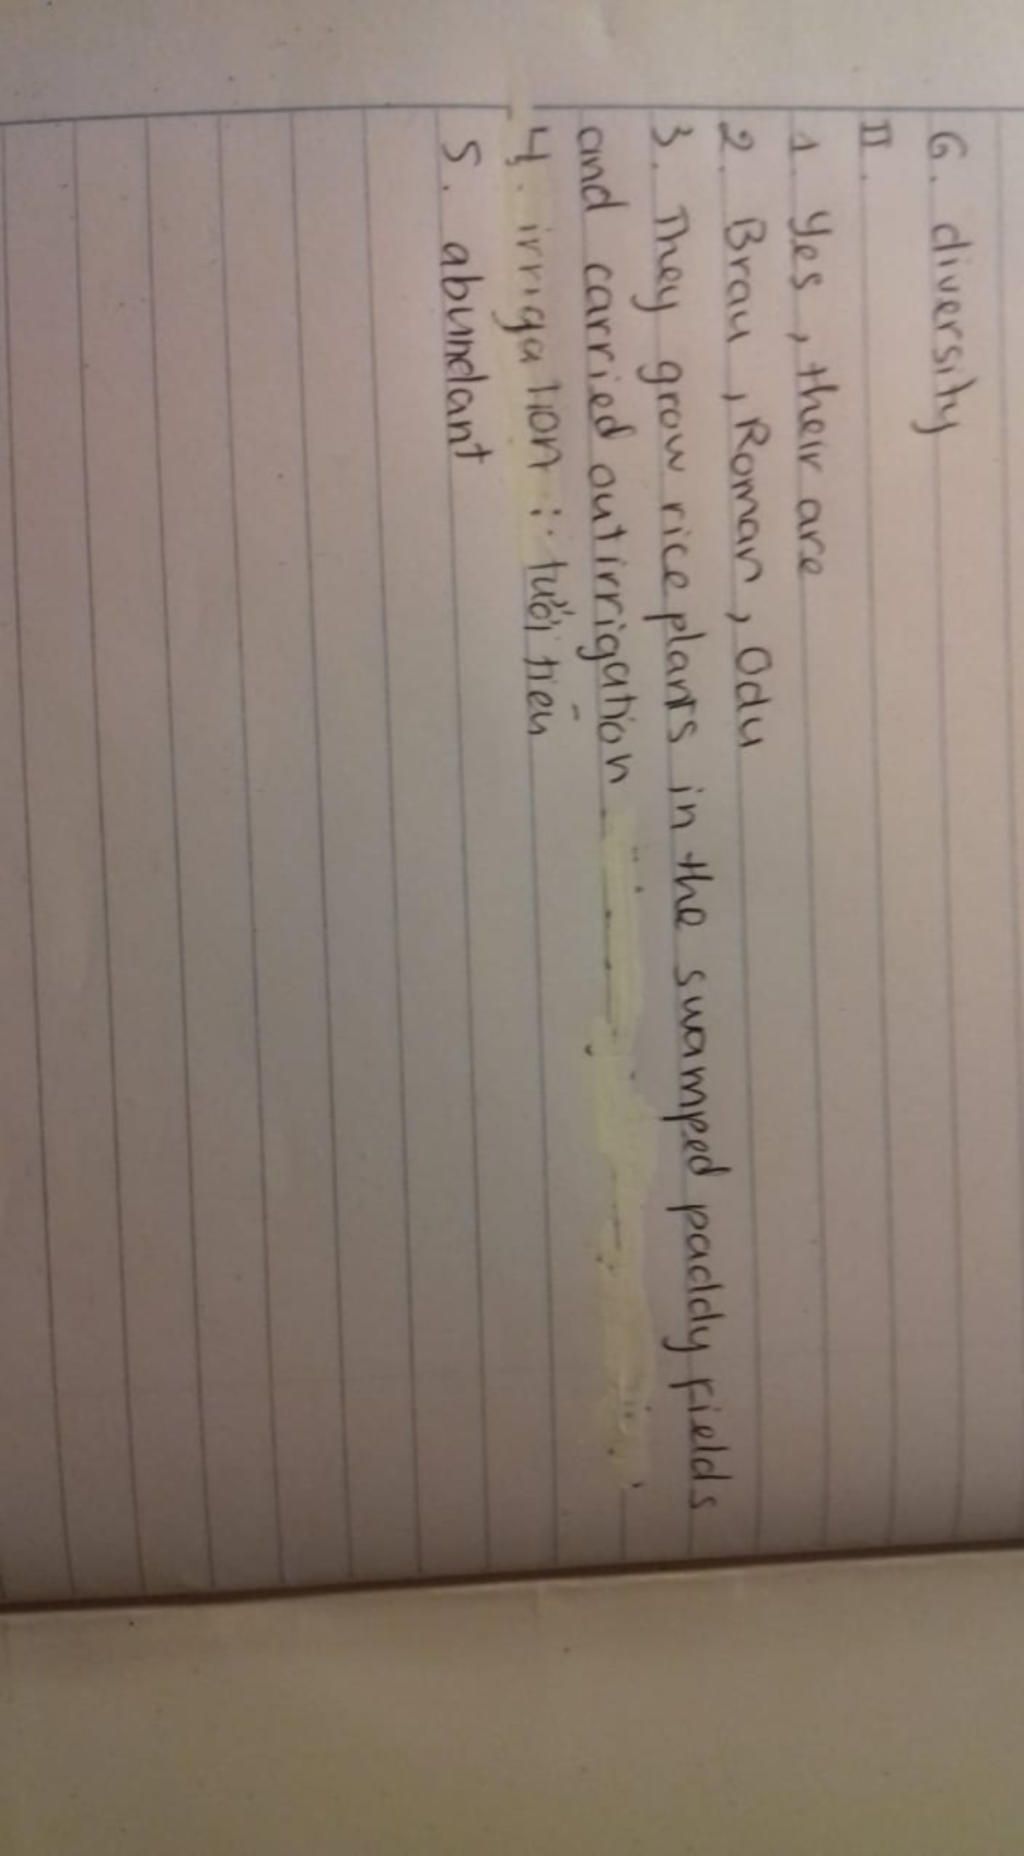 6. diversity
II.
1. Yes, their are
2. Brau, Roman, Odu
3. They grow rice plants in the swamped paddy fields
and carried out irrigation
4. irrigation : tưới tiêu
5. abundant